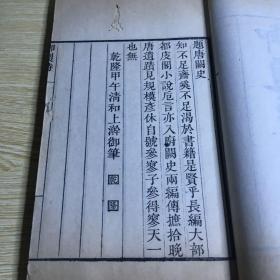 題唐闕史
知不足齋奚不足渴於書籍是賢乎長編大部
都庋閣小說卮言亦入廚闕史兩編傳摭拾晚
唐遺蹟見規模彥休自號參寥子參得寥天一
也無
乾隆甲午清和上澣御筆